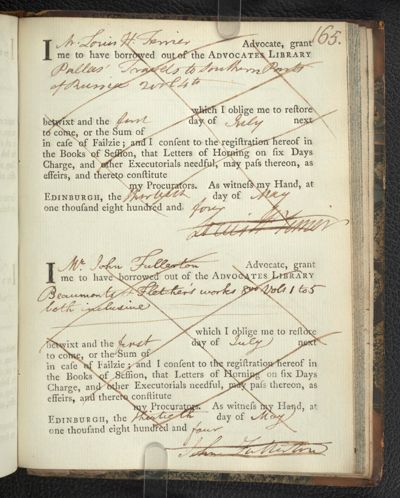 165.
I Mr. Louis H. Ferrier Advocate, grant
me to have borrowed out of the ADVOCATES LIBRARY
Pallas' Travels to Southern Parts
of Russia 2 vols 4to
which I oblige me to reſtore
betwixt and the first day of July next
to come, or the Sum of
in caſe of Failzie; and I conſent to the regiſtration hereof in
the Books of Seſſion, that Letters of Horning on ſix Days
Charge, and other Executorials needful, may paſs thereon, as
effeirs, and thereto conſtitute
my Procurators. As witneſs my Hand, at
EDINBURGH, the thirtieth day of May
one thouſand eight hundred and four
Louis H. Ferrier
I Mr. John Fullerton Advocate, grant
me to have borrowed out of the ADVOCATES LIBRARY
Beaumont & Fletcher's works 8vo Vols 1 to 5
both inclusive
which I oblige me to reſtore
betwixt and the first day of July next
to come, or the Sum of
in caſe of Failzie; and I conſent to the regiſtration hereof in
the Books of Seſſion, that Letters of Horning on ſix Days
Charge, and other Executorials needful, may paſs thereon, as
effeirs, and thereto conſtitute
my Procurators. As witneſs my Hand, at
EDINBURGH, the thirtieth day of May
one thouſand eight hundred and four
John Fullerton